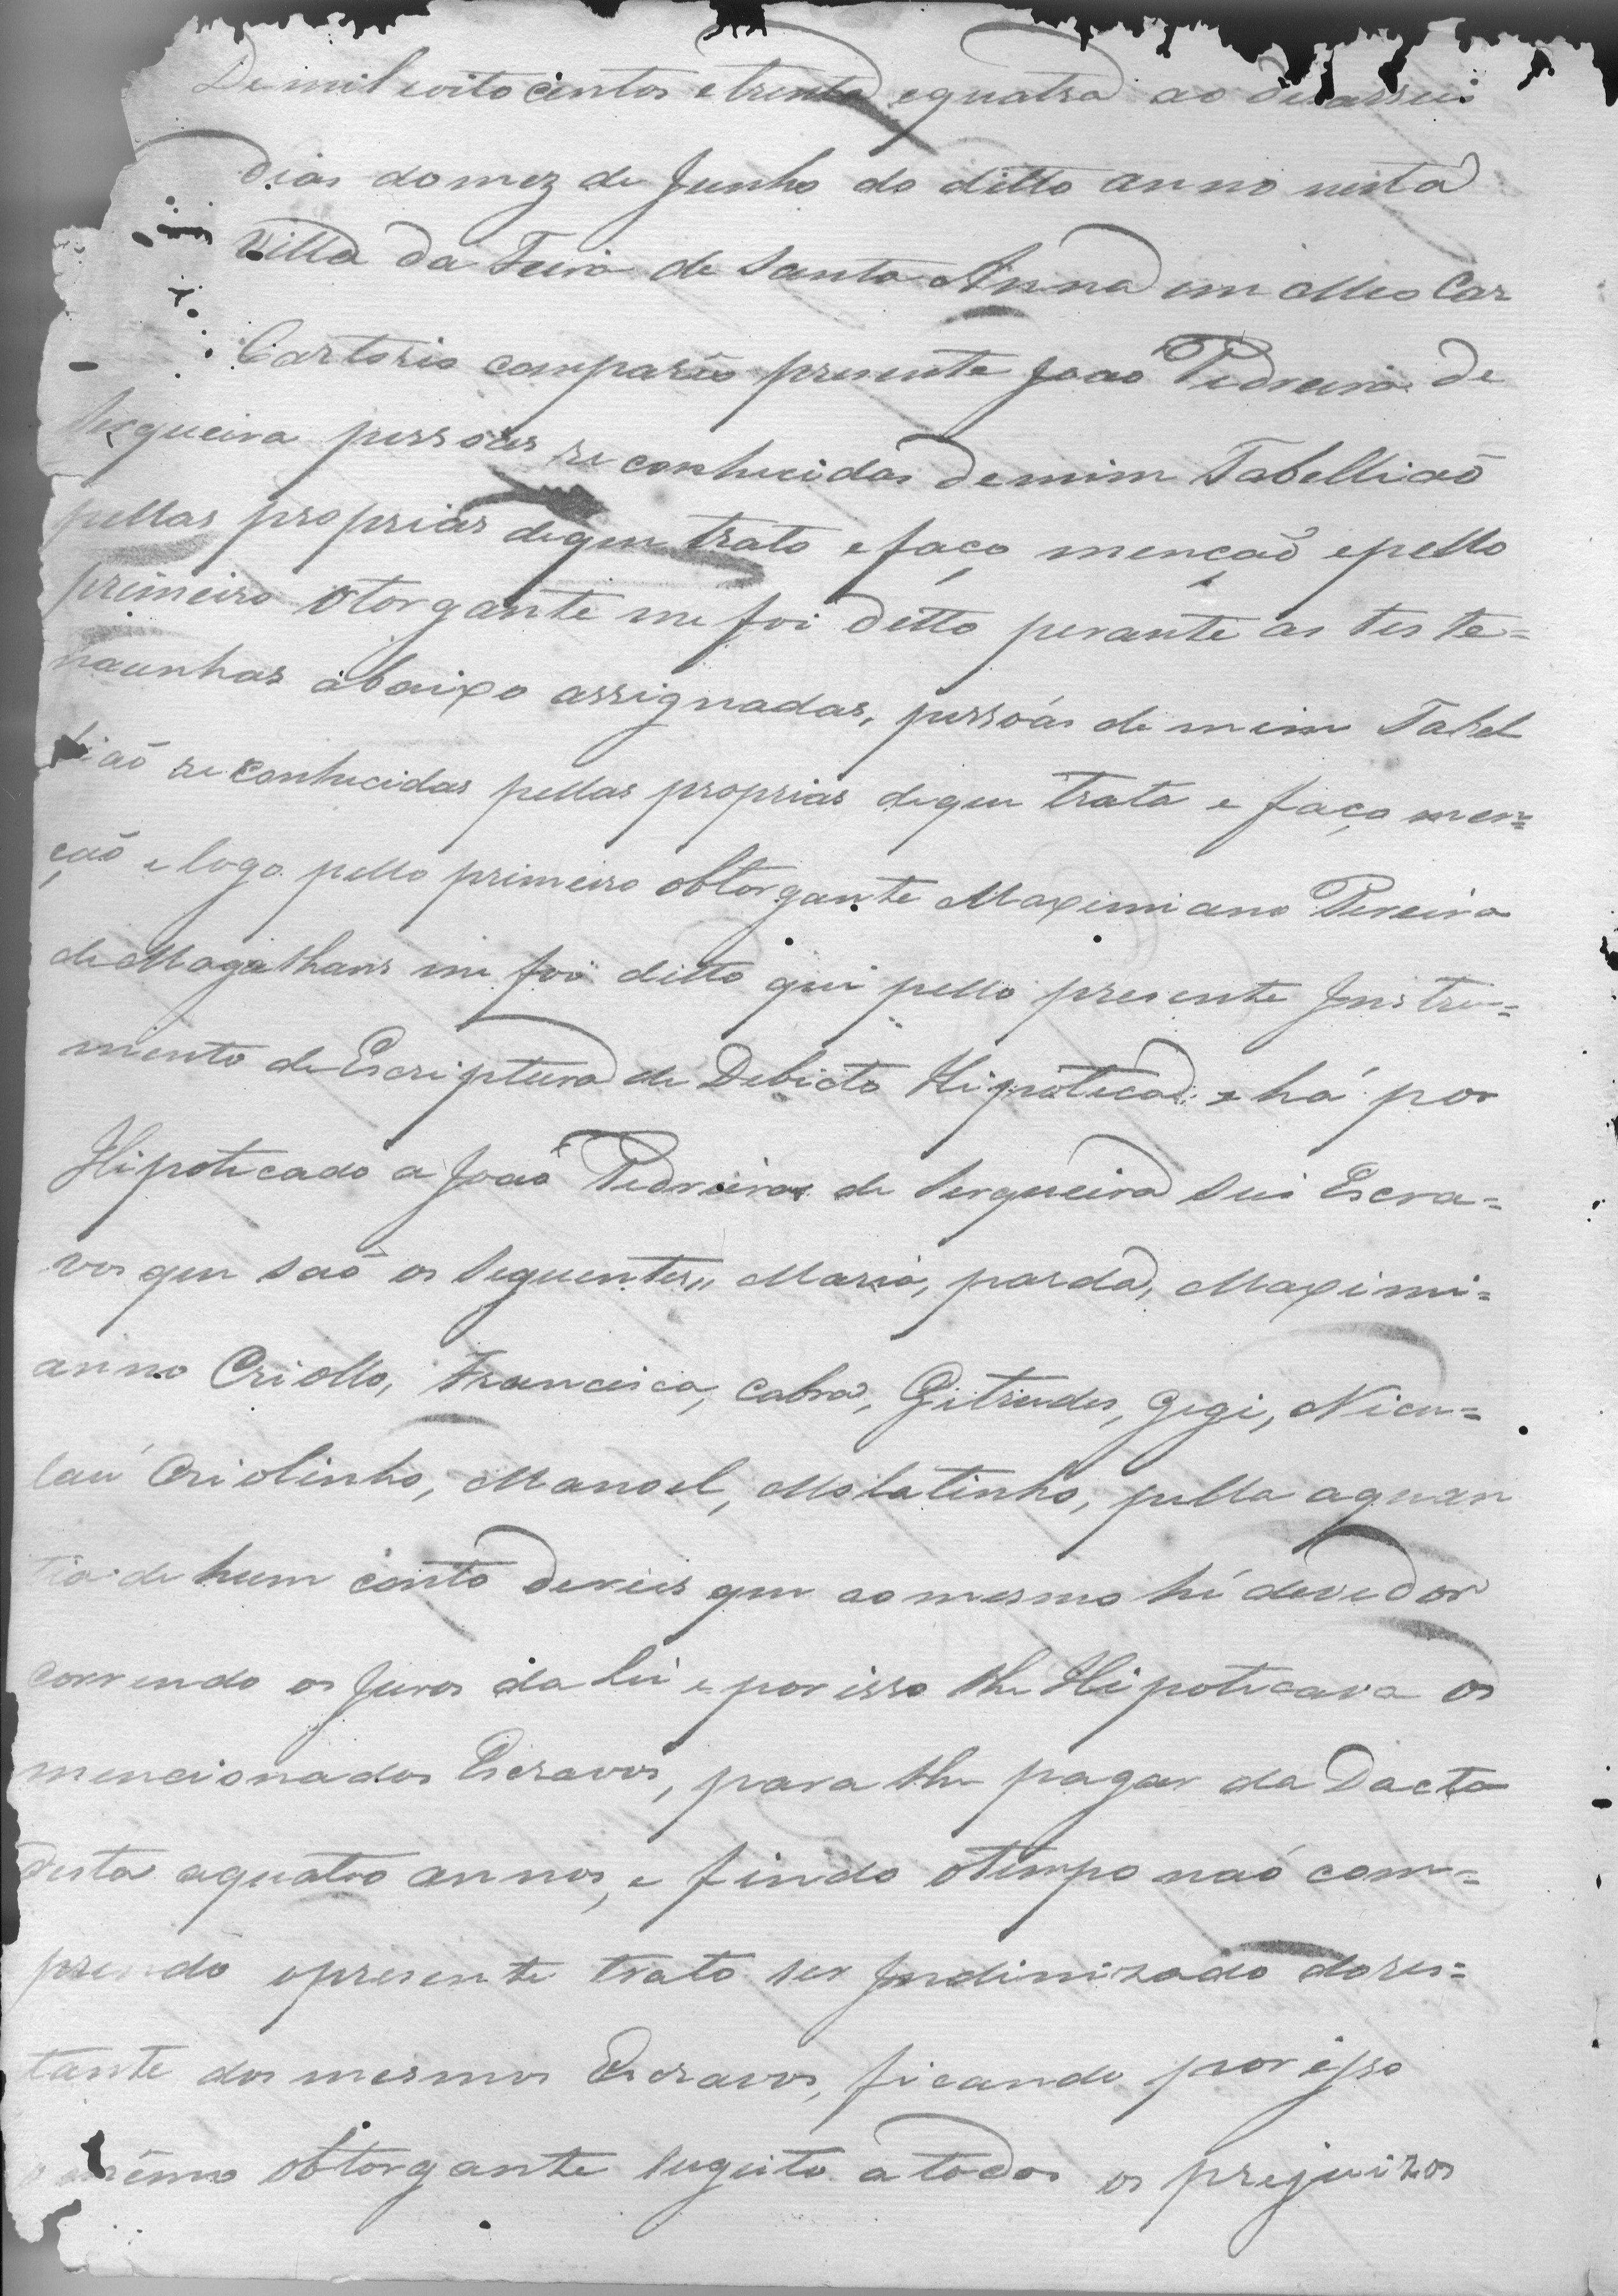 De mil eoito centos etrenta equatro ao desasseis
dias domez de Junho do ditto anno nesta
Villa da Feira de Santa Anna em Meo Car
Cartorio compareo presente Joaõ Pedreira de
Serqueira pessoas reconhecidas demim Tabelliaõ
pellas proprias dequem trato efaço mençaõ epello
primeiro Otorgante me foi ditto perante as teste=
maunhas abaixo assignadas, pessoás de mim Tabel
liaõ reconhecidas pellas proprias dequem trata e faço men=
çaõ e logo pello primeiro obtorgante Maximiano Pereira
de Magalhans me foi ditto que pello presente Jnstru=
mento de Escriptura de Debicto Hipoteca e há por
Hipoticado a Joaõ Pedreira de Serqueira seis Escra=
vos que saõ os seguentes,, Maria, parda, Maximi=
anno Criollo, Francisca, cabra, Gitrudes, Gegi, Nicu=
lau Criolinho, Manoel, Molatinho, pella aquan
tia de hum conto dereis que aomesmo hé devedor
correndo os Juros da Lei e por isso lhe Hipoticava os
mencionados Escravos, para lhe pagar da Dacta
desta aquatro annos, e findo otempo naõ com=
prindo opresente trato ser Jndimizado dores=
tante dos mesmos Escravos, ficando por isso
o mêmo obtorgante sugeito atodos os prejuizos